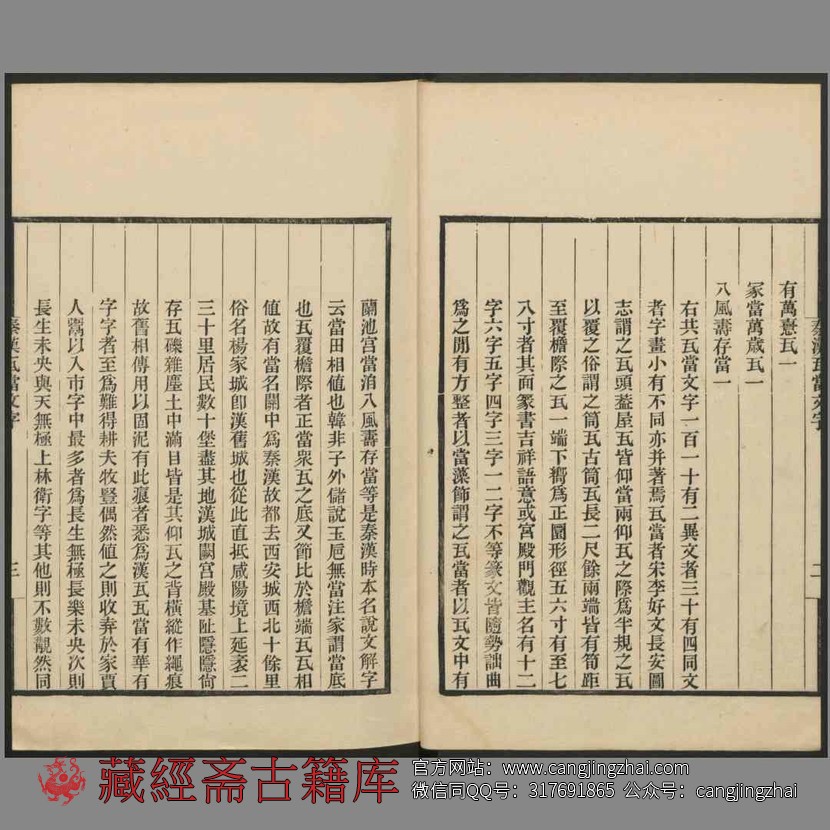 秦漢瓦當文字
二
有萬憙瓦一
冢當萬歲瓦一
八風壽存當一
右共瓦當文字一百一十有二異文者三十有四同文
者字畫小有不同亦并著焉瓦當者宋李好文長安圖
志謂之瓦頭葢屋瓦皆仰當兩仰瓦之際爲半規之瓦
以覆之俗謂之筒瓦古筒瓦長二尺餘兩端皆有筍距
至覆檐際之瓦一端下嚮爲正圜形徑五六寸有至七
八寸者其面篆書吉祥語意或宮殿門觀主名有十二
字六字五字四字三字一二字不等篆文皆隨勢詘曲
爲之閒有方整者以當藻飾謂之瓦當者以瓦文中有
蘭池宮當洎八風壽存當等是秦漢時本名說文解字
云當田相値也韓非子外儲說玉卮無當注家謂當底
也瓦覆檐際者正當衆瓦之底又節比於檐端瓦瓦相
値故有當名關中爲秦漢故都去西安城西北十餘里
俗名楊家城卽漢舊城也從此直抵咸陽境上延袤二
三十里居民數十堡盡其地漢城闕宮殿基阯隱隱尙
存瓦礫雜塵土中滿目皆是其仰瓦之背橫縱作繩痕
故舊相傳用以固泥有此痕者悉爲漢瓦瓦當有華有
字字者至爲難得耕夫牧豎偶然値之則收弆於家賈
人鬻以入市字中最多者爲長生無極長樂未央次則
長生未央與天無極上林衛字等其他則不數覯然同
秦漢瓦當文字
三
藏經斋古籍库
官方网站：www.cangjingzhai.com
微信同QQ号：317691865 公众号：cangjingzhai